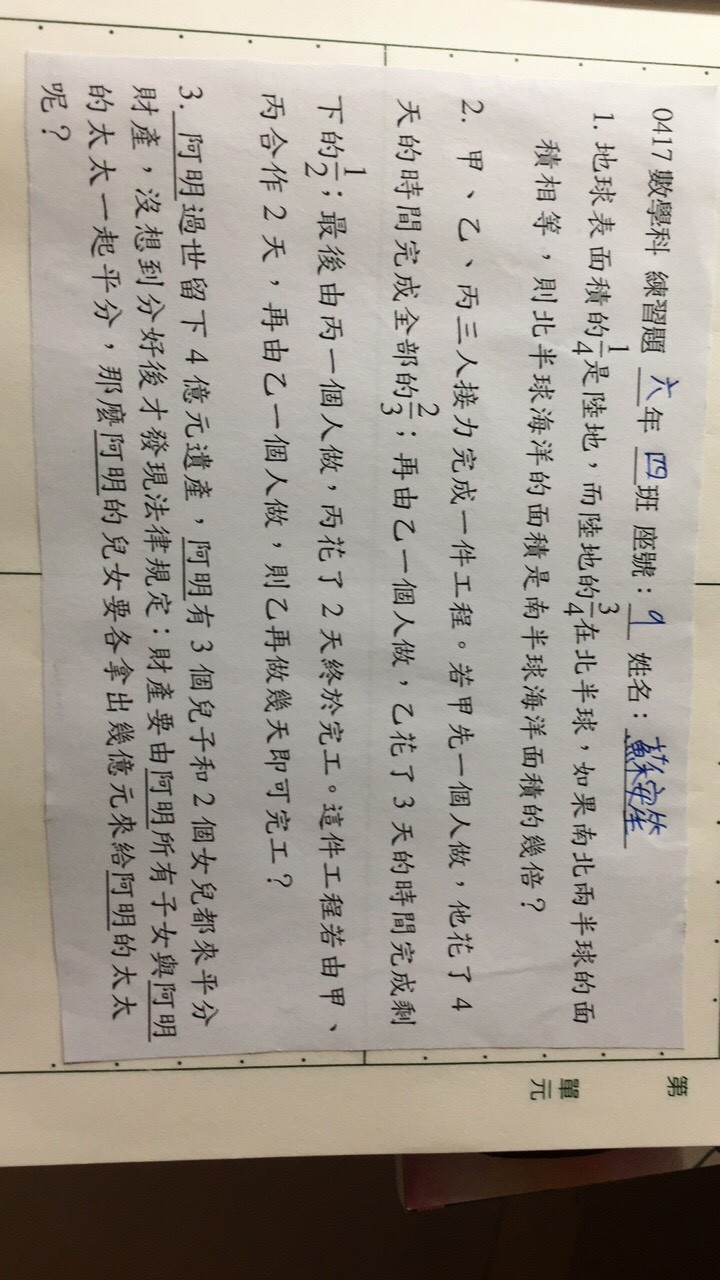 0417 數學科 練習題 六年 四班 座號：9 姓名：蘇安
1. 地球表面積的1/4是陸地，而陸地的3/4在北半球，如果南北兩半球的面
積相等，則北半球海洋的面積是南半球海洋面積的幾倍？
2. 甲、乙、丙三人接力完成一件工程。若甲先一個人做，他花了 4
天的時間完成全部的2/3；再由乙一個人做，乙花了 3 天的時間完成剩
下的1/2；最後由丙一個人做，丙花了 2 天終於完工。這件工程若由甲、
丙合作 2 天，再由乙一個人做，則乙再做幾天即可完工？
3. 阿明過世留下 4 億元遺產，阿明有 3 個兒子和 2 個女兒都來平分
財產，沒想到分好後才發現法律規定：財產要由阿明所有子女與阿明
的太太一起平分，那麼阿明的兒女要各拿出幾億元來給阿明的太太
呢？
第
單元